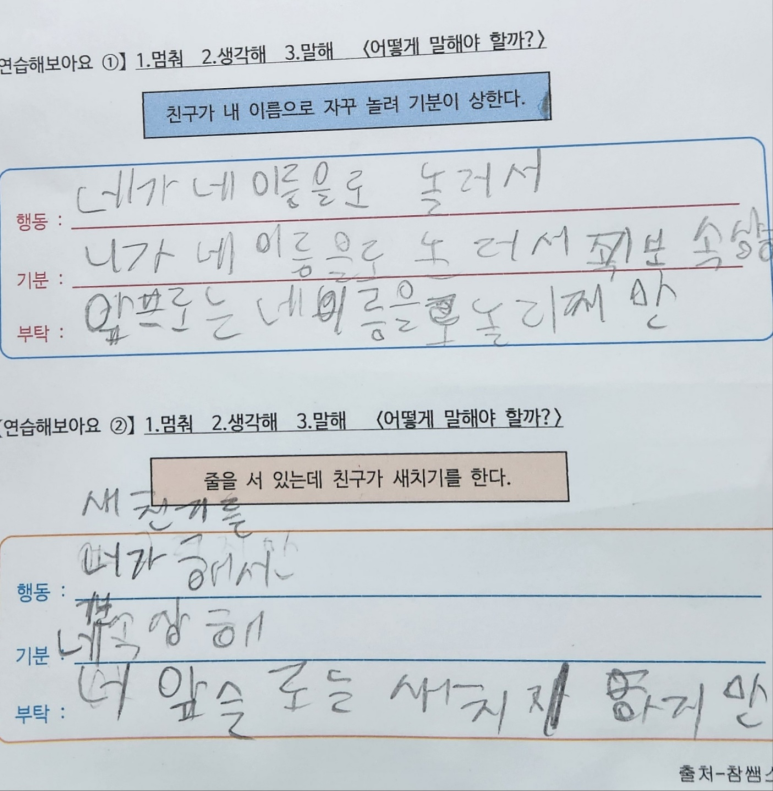 연습해보아요 ①】 1.멈춰 2.생각해 3.말해 <어떻게 말해야 할까?>
친구가 내 이름으로 자꾸 놀려 기분이 상한다.
행동 : 네가 네 이름을로 놀러서
기분 : 니가 네 이름을로 논 러서 속상
부탁 : 앞프로는 네 이름을로 놀리지 만
[연습해보아요 ②】 1.멈춰 2.생각해 3.말해 <어떻게 말해야 할까?>
줄을 서 있는데 친구가 새치기를 한다.
행동 : 해서
기분 : 속상해
부탁 : 앞슬로는 새치 하지 만
출처-참쌤스